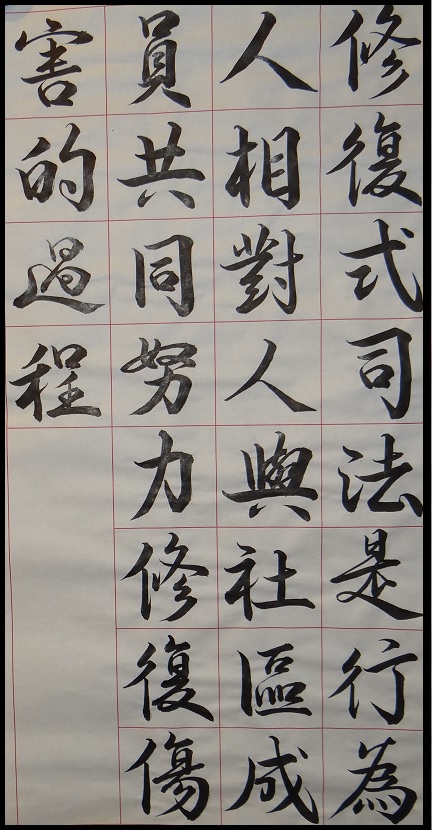 修復式司法是行為
人相對人與社區成
員共同努力修復傷
害的過程